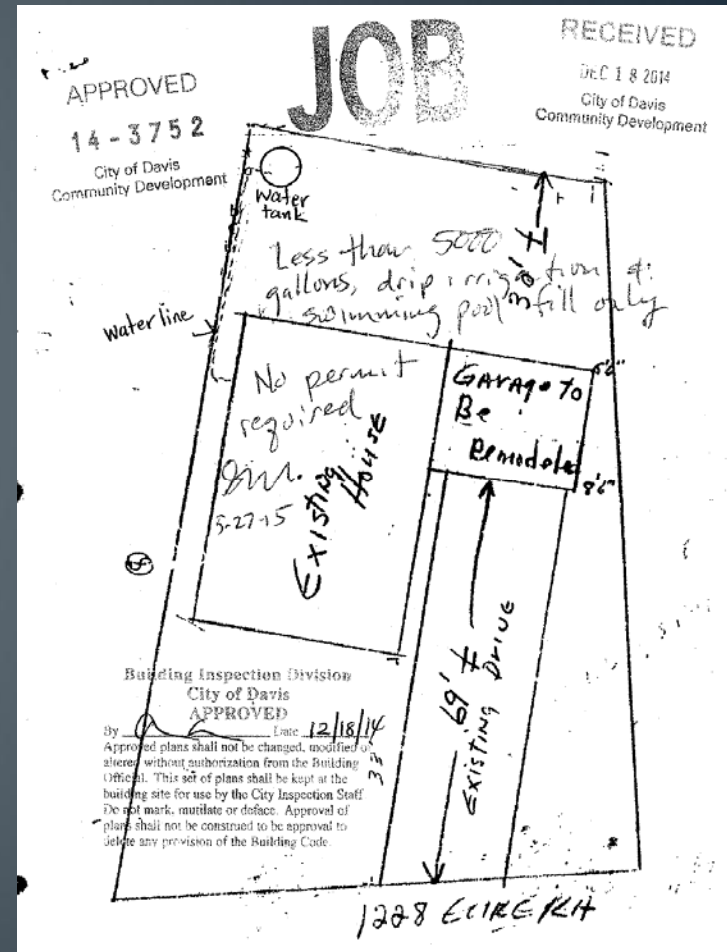 JOB
APPROVED
14-3752
City of Davis
Community Development
RECEIVED
DEC 18 2014
City of Davis
Community Development
water
tank
Less than 5000
gallons, drip irrigation &
swimming pool infill only
water line
No permit
required
5-27-15
EXISTING
HOUSE
GARAGE TO
Be
Remodeled
8'6"
69' ±
EXISTING DRIVE
Building Inspection Division
City of Davis
APPROVED
By Date 12/18/14
Approved plans shall not be changed, modified or
altered without authorization from the Building
Official. This set of plans shall be kept at the
building site for use by the City Inspection Staff
Do not mark, mutilate or deface. Approval of
plans shall not be construed to be approval to
delete any provision of the Building Code.
1228